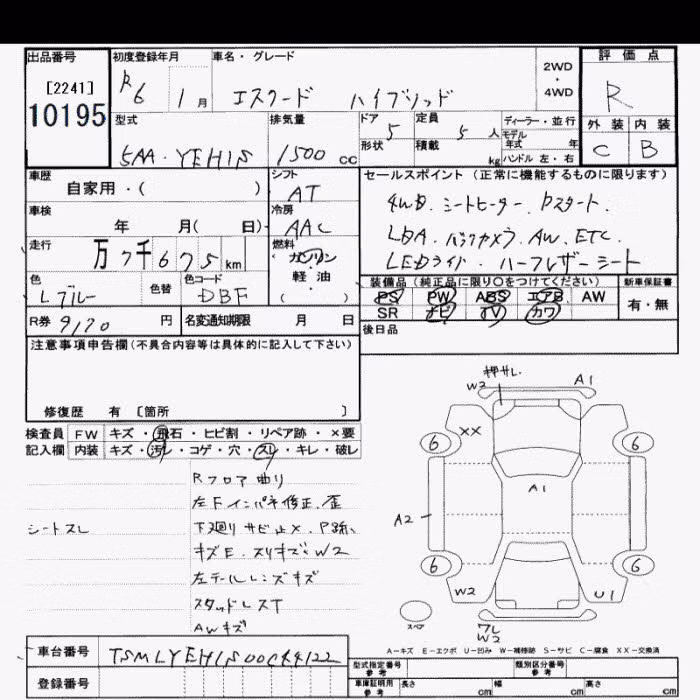 出品番号 初度登録年月 車名・グレード 評価点
[2241] R6 1月 エスクード ハイブリッド 2WD・4WD R
10195
型式 排気量 ドア 5 定員 5人 ディーラー・並行 外装 内装
5AA-YEH1S 1500cc 形状 積載 kg モデル年式 年 C B
ハンドル 左・右
車歴 自家用・( ) シフト AT セールスポイント(正常に機能するものに限ります)
車検 年 月( 日) 冷房 AAC 4WD.シートヒーター.Pスタート.
走行 万7千675km 燃料 ガソリン 軽・油 ( ) LDA.バックカメラ.AW.ETC.
LEDライト.ハーフレザーシート
色 Lブルー 色替 色コード DBF 装備品(純正品に限り○をつけてください) 新車保証書
PS PW ABS エアB AW 有・無
SR ナビ TV カワ
R券 9170円 名変通知期限 月 日 後日品
注意事項申告欄(不具合内容等は具体的に記入して下さい)
修復歴 有 [箇所 ]
検査員 FW キズ・飛石・ヒビ割・リペア跡・×要
記入欄 内装 キズ・汚レ・コゲ・穴・スレ・キレ・破レ
Rフロア曲り
左Fインパネ修正.歪
シートスレ 下廻りサビ止×.P跡.
キズE.スリキズ.W2
左テールレンズキズ
スタッドレスT
AWキズ
押サレ.
W2 A1
XX
6 6
A1
A2
6 6
W2 U1
スペア ワレ
W2
A-キズ E-エクボ U-凹み W-補修跡 S-サビ C-腐食 XX-交換済
車台番号 型式指定番号 参考 類別区分番号 参考
登録番号 車庫証明用 参考 長さ cm 幅 cm 高さ cm